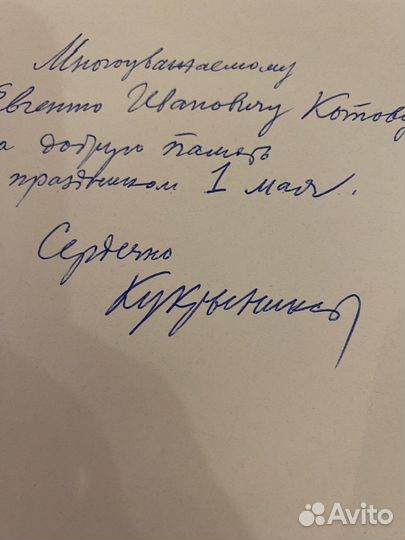 Многоуважаемому
Евгению Ивановичу Котову
а добрую память
праздником 1 мая.
Сердечно
Кукрыниксы
Avito